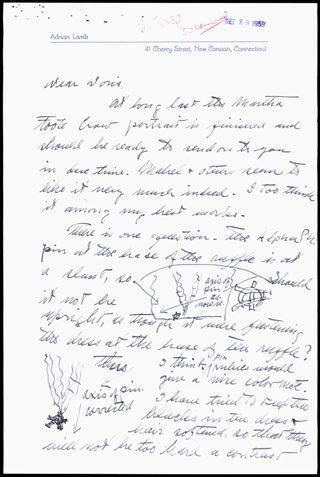 SEP 28 1959
Adrian Lamb
41 Cherry Street, New Canaan, Connecticut
Dear Doris,
At long last the Martha
Foote Crow portrait is finished and
should be ready to send on to you
in one time. Mabel & others seem to
like it very much indeed. I too think
it among my best works.
There is one question - the Alpha Phi
pin at the base of the ruffle is at
a slant, so
axis of
pin
as
now is.
Should
it not be
upright, as though it were fastening
the dress at the base of the ruffle?
thus
axis of pin
corrected
I think pin rubies would
give a nice color note.
I have tried to keep the
in the dress &
their softened, so that they
will not be too hard a contrast